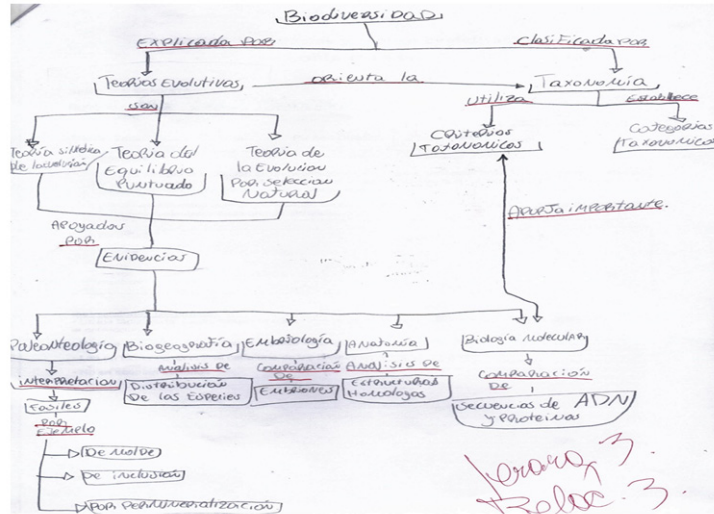 Biodiversidad
Explicada por
Clasificada por
Teorías Evolutivas
orienta la
Taxonomía
son
Utiliza
Establece
Criterios
Taxonomicos
Categorias
Taxonomicas
Teoría sintética
de la evolución
Teoría del
Equilibrio
Puntuado
Teoría de
la Evolucion
Por Seleccion
Natural
Aporta importante
Apoyados
por
Evidencias
Paleonteología
Biogeografía
Embriología
Anatomía
Biología molecular
interpretacion
Análisis de
Comparación
De
Análisis de
Comparación
De
Fosiles
Distribución
De las Especies
Embriones
Estructuras
Homologas
secuencias de ADN
y proteinas
por
Ejemplo
De molde
De inclusión
Por Permineralización
Jerarq 3.
Relac. 3.